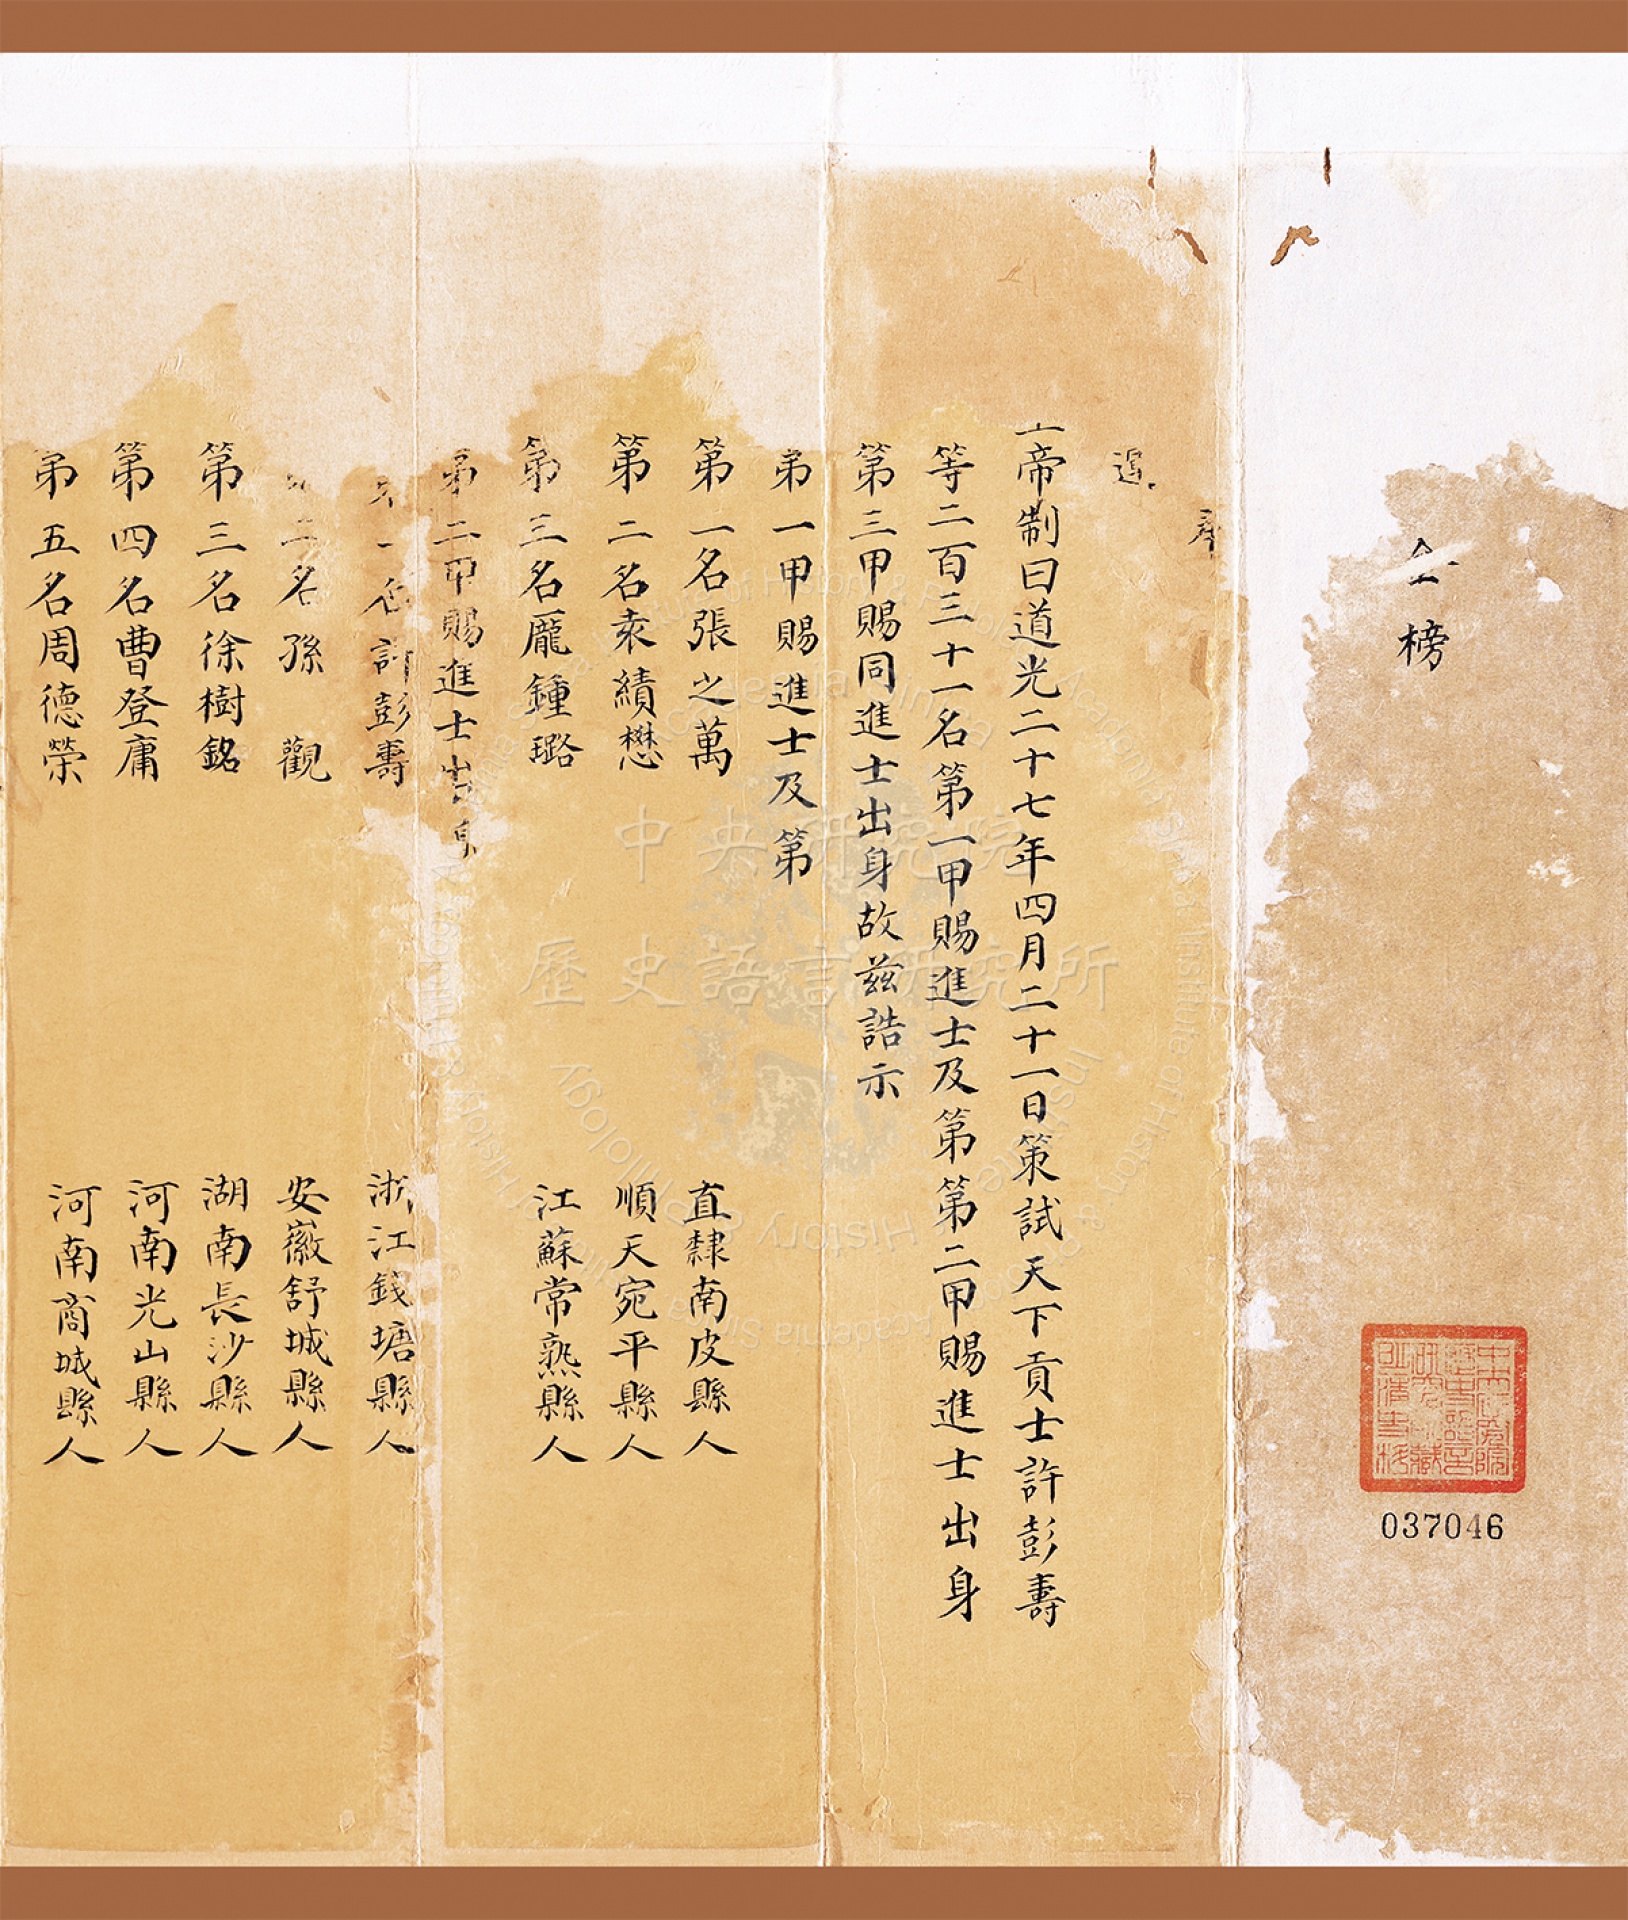 金榜
037046
帝制曰道光二十七年四月二十一日策試天下貢士許彭壽
等二百三十一名第一甲賜進士及第第二甲賜進士出身
第三甲賜同進士出身故茲誥示
第一甲賜進士及第
第一名張之萬 直隸南皮縣人
第二名袁績懋 順天宛平縣人
第三名龐鍾璐 江蘇常熟縣人
第二甲賜進士出身
一名許彭壽 浙江錢塘縣人
二名孫觀 安徽舒城縣人
第三名徐樹銘 湖南長沙縣人
第四名曹登庸 河南光山縣人
第五名周德榮 河南商城縣人
中央研究院
歷史語言研究所
Institute of History & Philology Academia Sinica